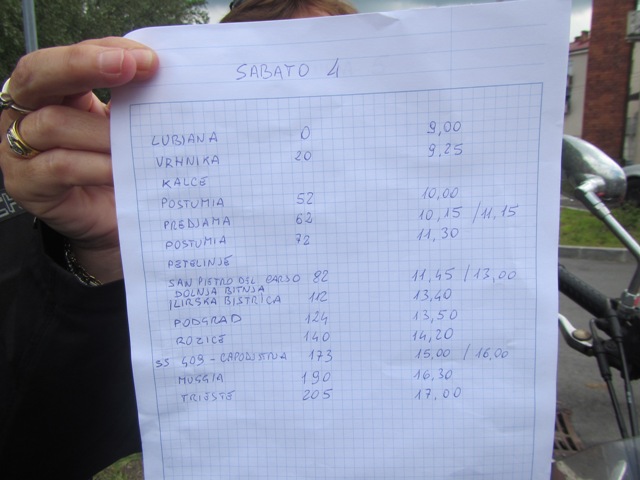 SABATO 4
LUBIANA 0 9,00
VRHNIKA 20 9,25
KALCE
POSTUMIA 52 10,00
PREDJAMA 62 10,15 / 11,15
POSTUMIA 72 11,30
PETELINJE
SAN PIETRO DEL CARSO 82 11,45 / 13,00
DOLNJA BITNJA
ILIRSKA BISTRICA 112 13,40
PODGRAD 124 13,50
ROZICE 140 14,20
SS 409 - CAPODISTRIA 173 15,00 / 16,00
MUGGIA 190 16,30
TRIESTE 205 17,00